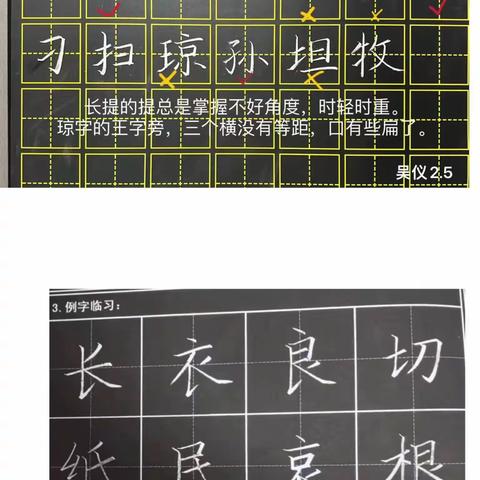 刁扫琼孙坦牧
长提的提总是掌握不好角度，时轻时重。
琼字的王字旁，三个横没有等距，口有些扁了。
吴仪2.5
3.例字临习：
长衣良切
纸民哀根